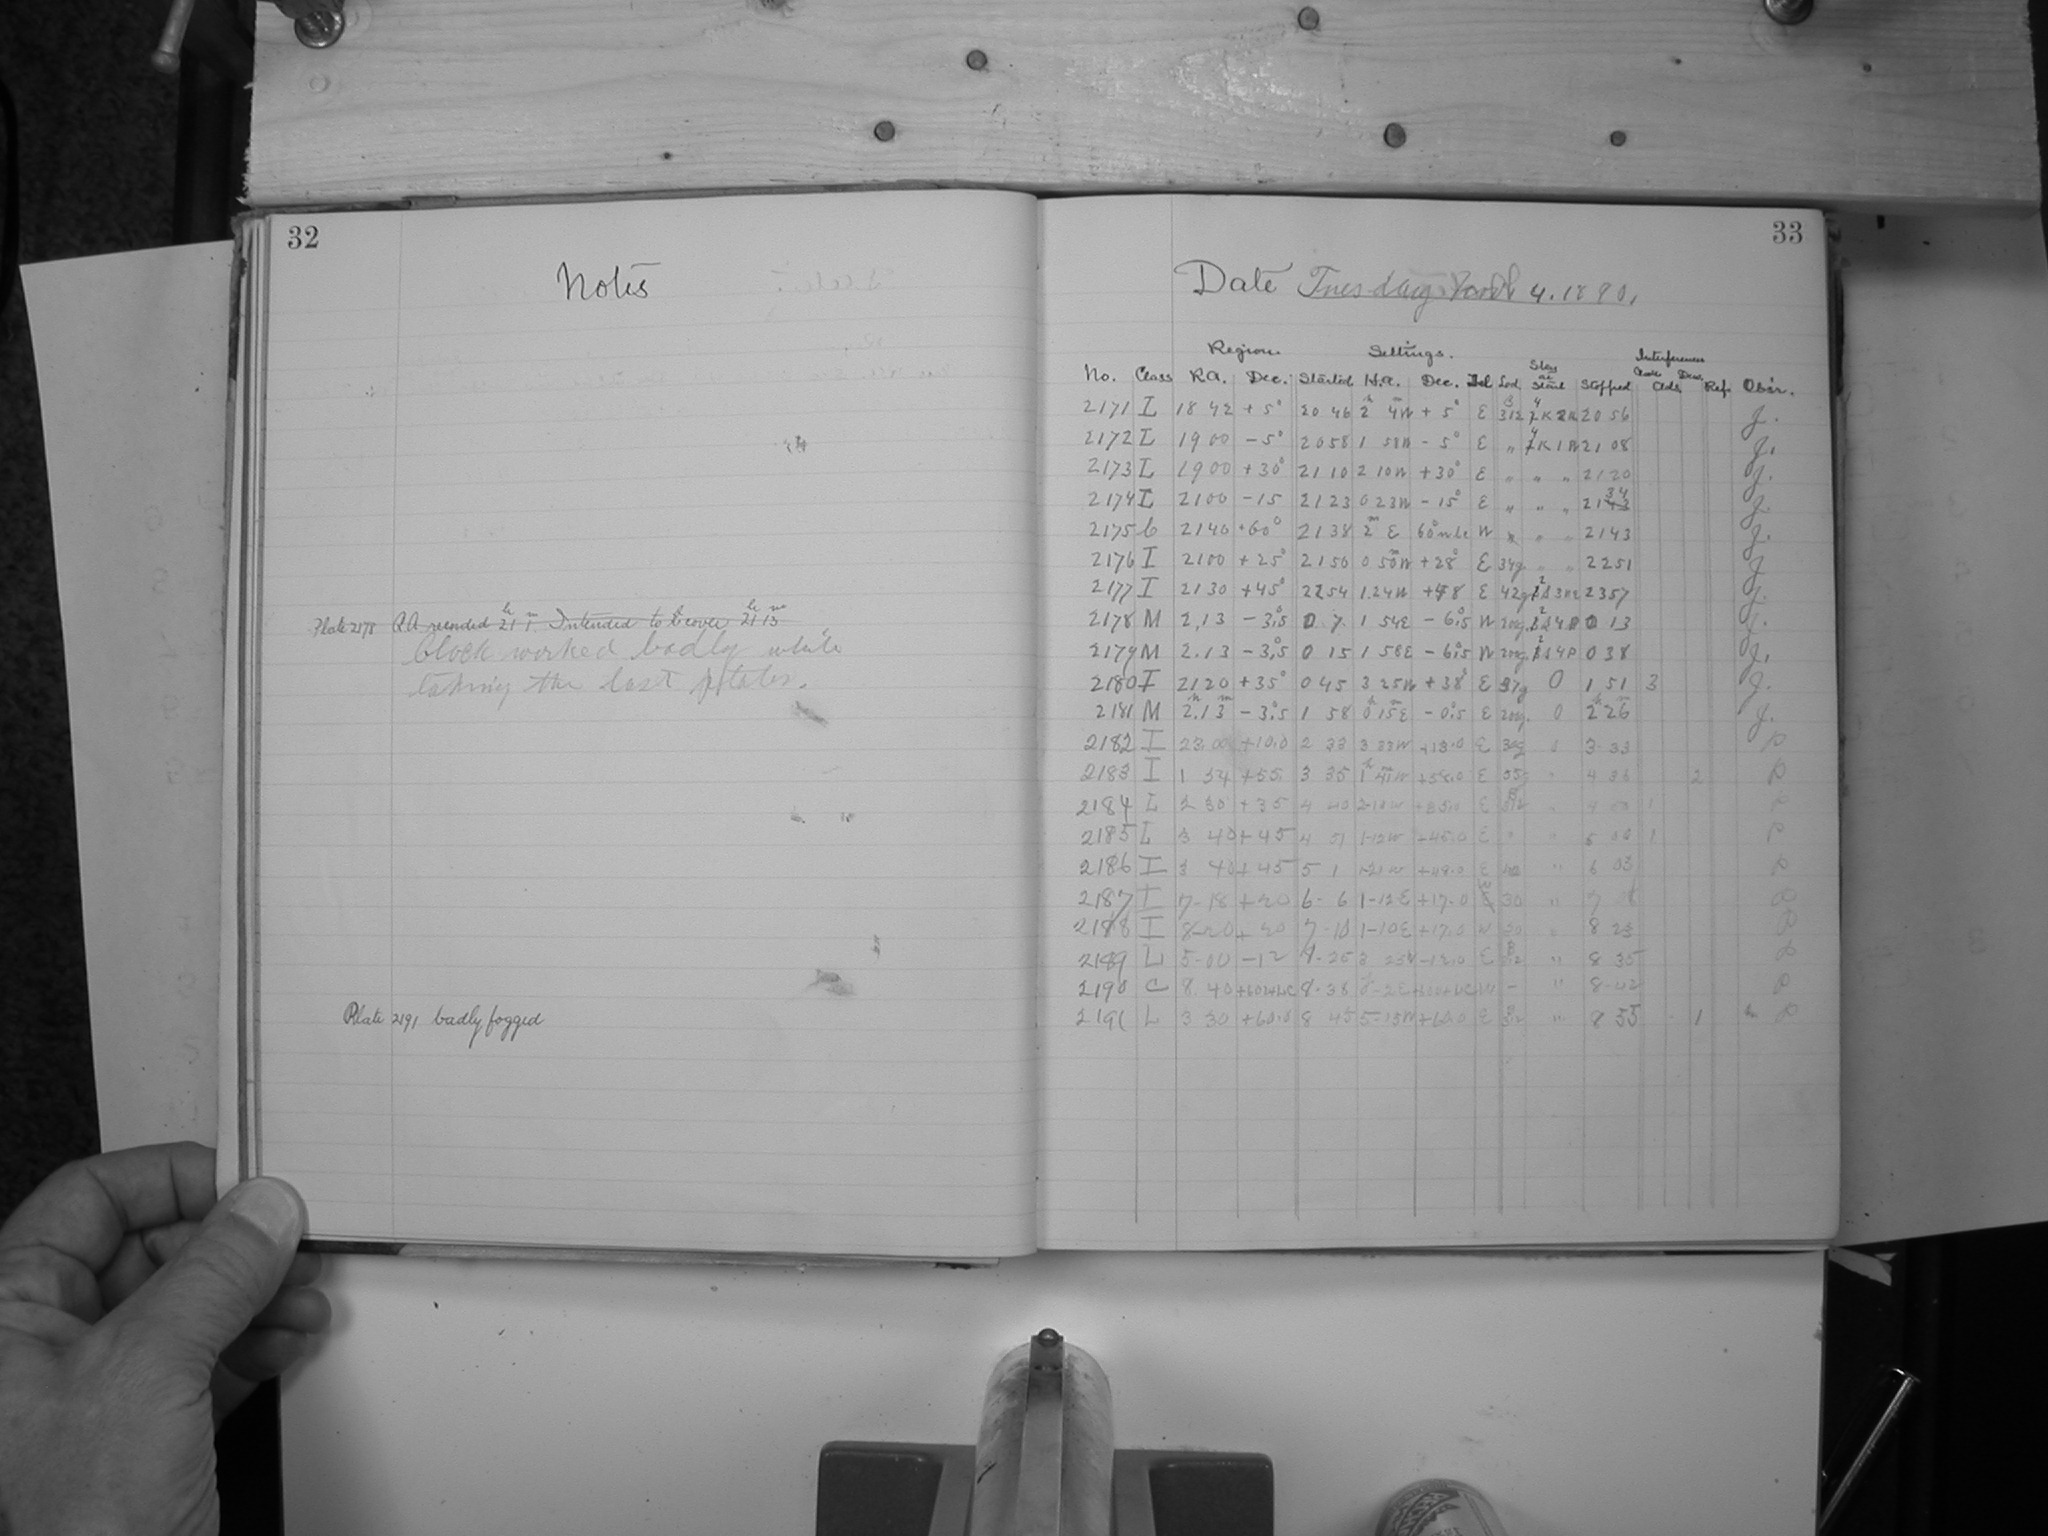 32
Notes
Plate 2178 RA recorded 21h 1m. Intended to cover 21h 13m
Clock worked badly while
taking the last plates.
Plate 2191 badly fogged
33
Date Tuesday March 4. 1890.
Region. Settings. Interference
No. Class R.A. Dec. Started H.A. Dec. Tel Stopped Clock Dew. Ref. Obsr.
2171 I 18 42 + 5° 20 46 2h 4m + 5° E 20 56 J.
2172 L 19 00 - 5° 20 58 1 58W - 5° E " 21 08 J.
2173 L 19 00 + 30° 21 10 2 10W + 30° E " " " 21 20 J.
2174 L 21 00 - 15 21 23 0 23W - 15° E " " " 21 34 J.
2175 C 21 40 + 60° 21 38 2m E W " " 21 43 J.
2176 I 21 00 + 25° 21 50 0 50W + 28° E 34g " " 22 51 J.
2177 I 21 30 + 45° 22 54 1.24W + 48 E 42g 23 57 J.
2178 M 2,13 - 3°.5 0 7 1 54E - 6°.5 W 20g. 0 13 J.
2179 M 2.13 - 3°.5 0 15 1 58E - 6°.5 W 20g. 0 38 J.
2180 I 21 20 + 35° 0 45 3 25W + 38° E 37g 0 1 51 3 J.
2181 M 2h.13m - 3°.5 1 58 0h 15m E - 0°.5 E 20g. 0 2h 26m J.
2182 I 23.00 +10.0 2 33 3 33W +13.0 E 3.33 P
2183 I 1 54 +55 3 35 1h 41m W +58.0 E " 2 P
2184 L 2 30 +35 4 40 2-10W E " 1 P
2185 L 3 40 +45 4 51 1-12W +45.0 E " " 1 P
2186 I 3 40 +45 5 1 1-21W +48.0 E " 6 03 P
2187 I 7-18 +20 6-6 1-12E +17.0 30 " P
2188 I 8-20 +20 7-10 1-10E +17.0 W 30 " 8 23 P
2189 L 5-00 -12 8-25 3 25W -12.0 E " 8 35 P
2190 C 8.40 8-38 W - " 8-42 P
2191 L 3 30 +60.0 8 45 5-15W +60.0 E " 8 55 1 P